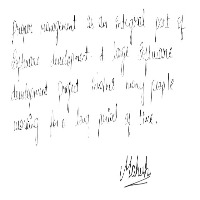 Project management is an integral part of
software development. A large software
development project involves many people
working for a long period of time.